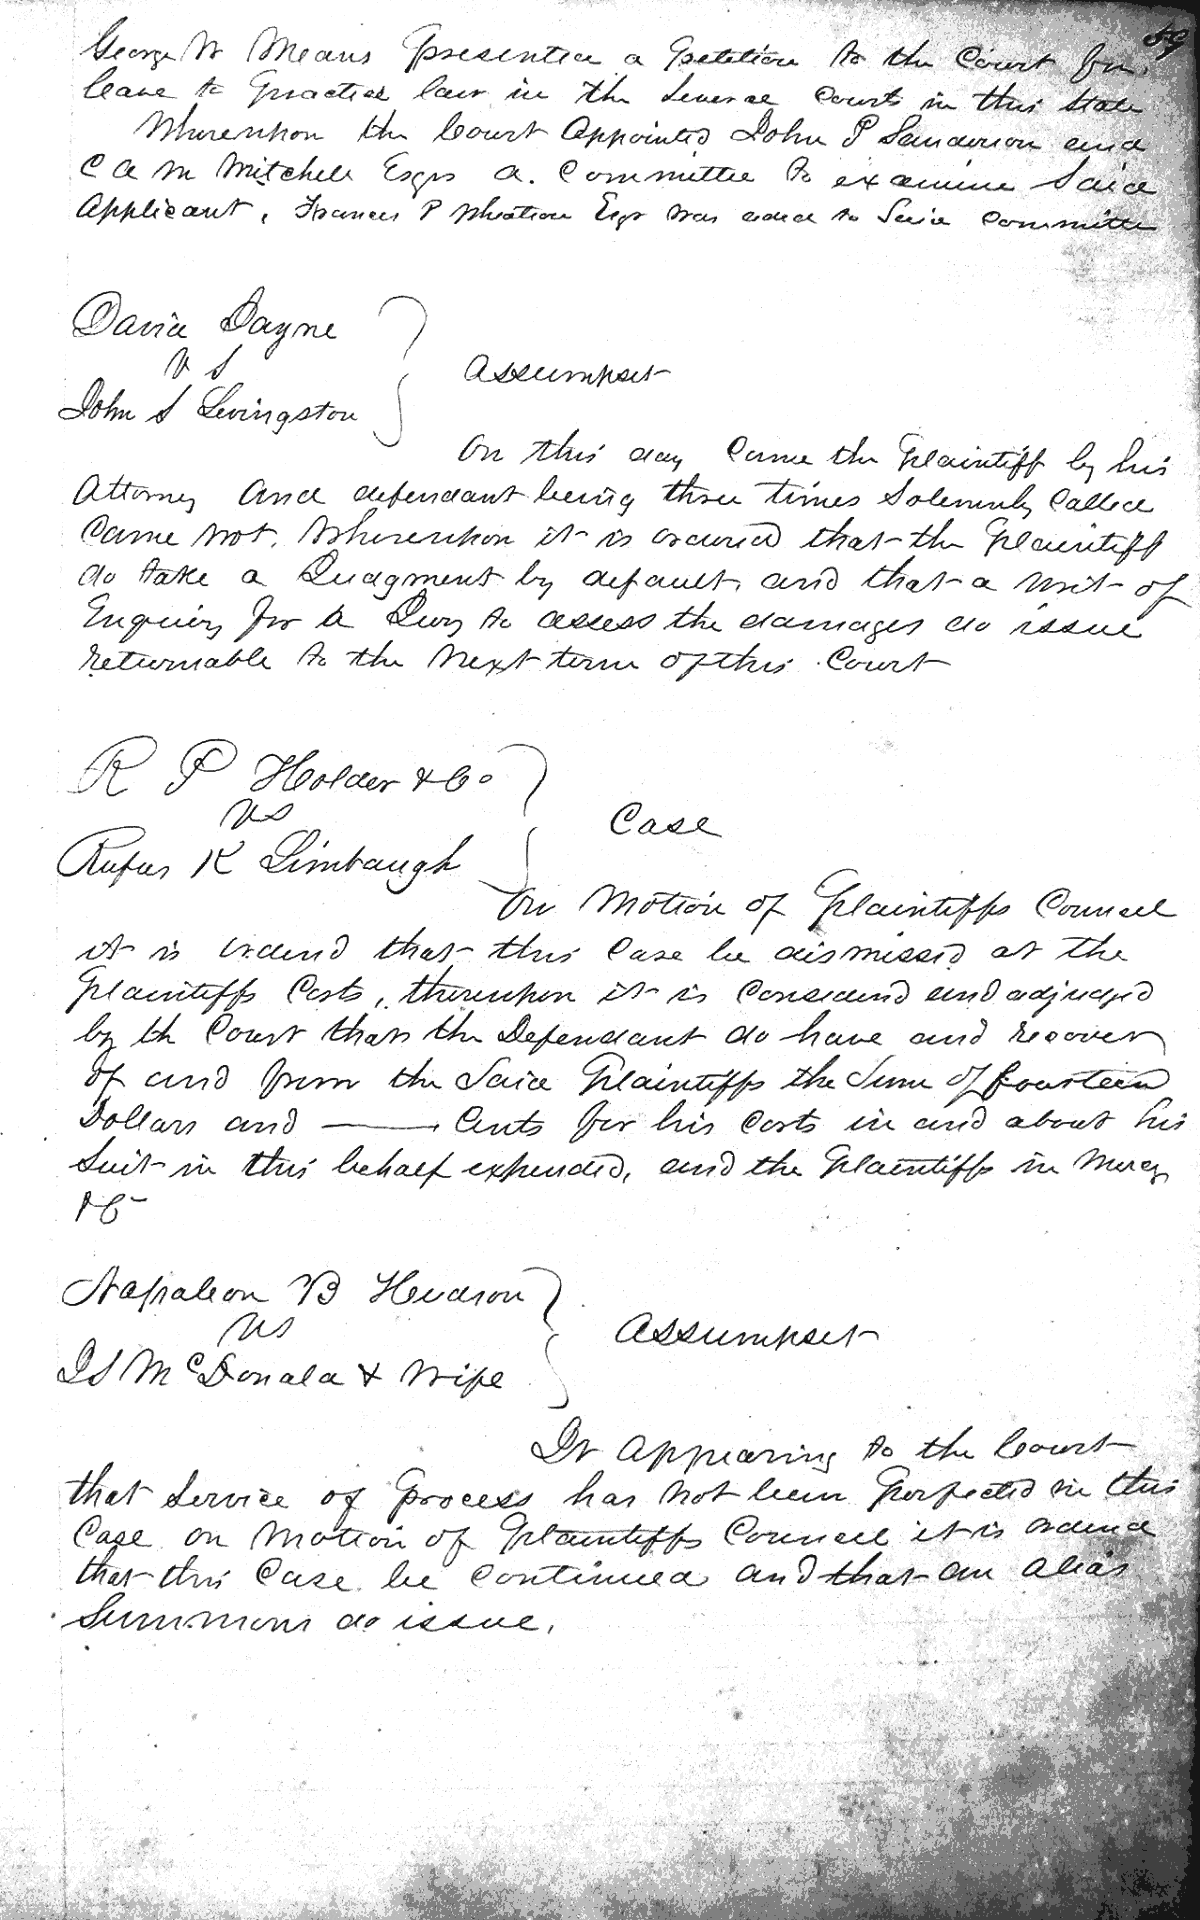 59
George W Means presented a Petition to the Court for
leave to Practice law in the Several Courts in this State
Whereupon the Court Appointed John P Sanderson and
C A M Mitchell Esqrs a Committee to examine Said
Applicant, Frances P Wheaton Esqr was added to Said Committee
David Dayne
vs
John S Levingston
Assumpset
On this day Came the Plaintiff by his
Attorney and defendant being three times Solemnly Called
Came not. Whereupon it is ordered that the Plaintiff
do take a Judgment by default, and that a writ of
Enquiry for a Jury to assess the damages do issue
returnable to the next term of this Court
R P Holder & Co
vs
Rufus K Limbaugh
Case
On Motion of Plaintiffs Councel
it is ordered that this Case be dismissed at the
Plaintiffs Costs, thereupon it is Considered and adjudged
by th Court that the Defendant do have and recover
of and from the Said Plaintiffs the Sum of fourteen
Dollars and ——— Cents for his Costs in and about his
Suit in this behalf expended, and the Plaintiffs in Mercy
&C
Napoleon B Hudson
vs
J S McDonald & Wife
Assumpset
It appearing to the Court
that Service of Process has not been Perfected in this
Case on Motion of Plaintiffs Councel it is ordered
that this Case be Continued and that an alias
Summons do issue.